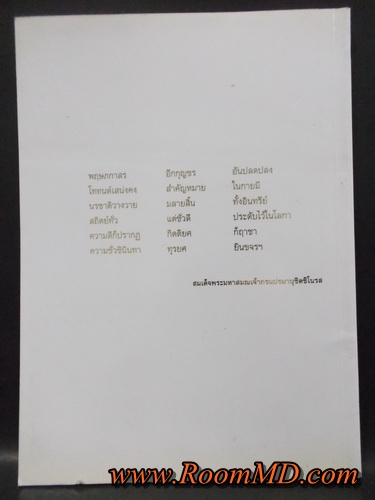 พฤษภกาสร อีกกุญชร อันปลดปลง
โททนต์เสน่งคง สำคัญหมาย ในกายมี
นรชาติวางวาย มลายสิ้น ทั้งอินทรีย์
สถิตย์ทั่ว แต่ชั่วดี ประดับไว้ในโลกา
ความดีก็ปรากฏ กิตติยศ ก็ฤาชา
ความชั่วซินินทา ทุรยศ ยินขจรฯ
สมเด็จพระมหาสมณเจ้ากรมปรมานุชิตชิโนรส
www.RoomMD.com
www.RoomMD.com